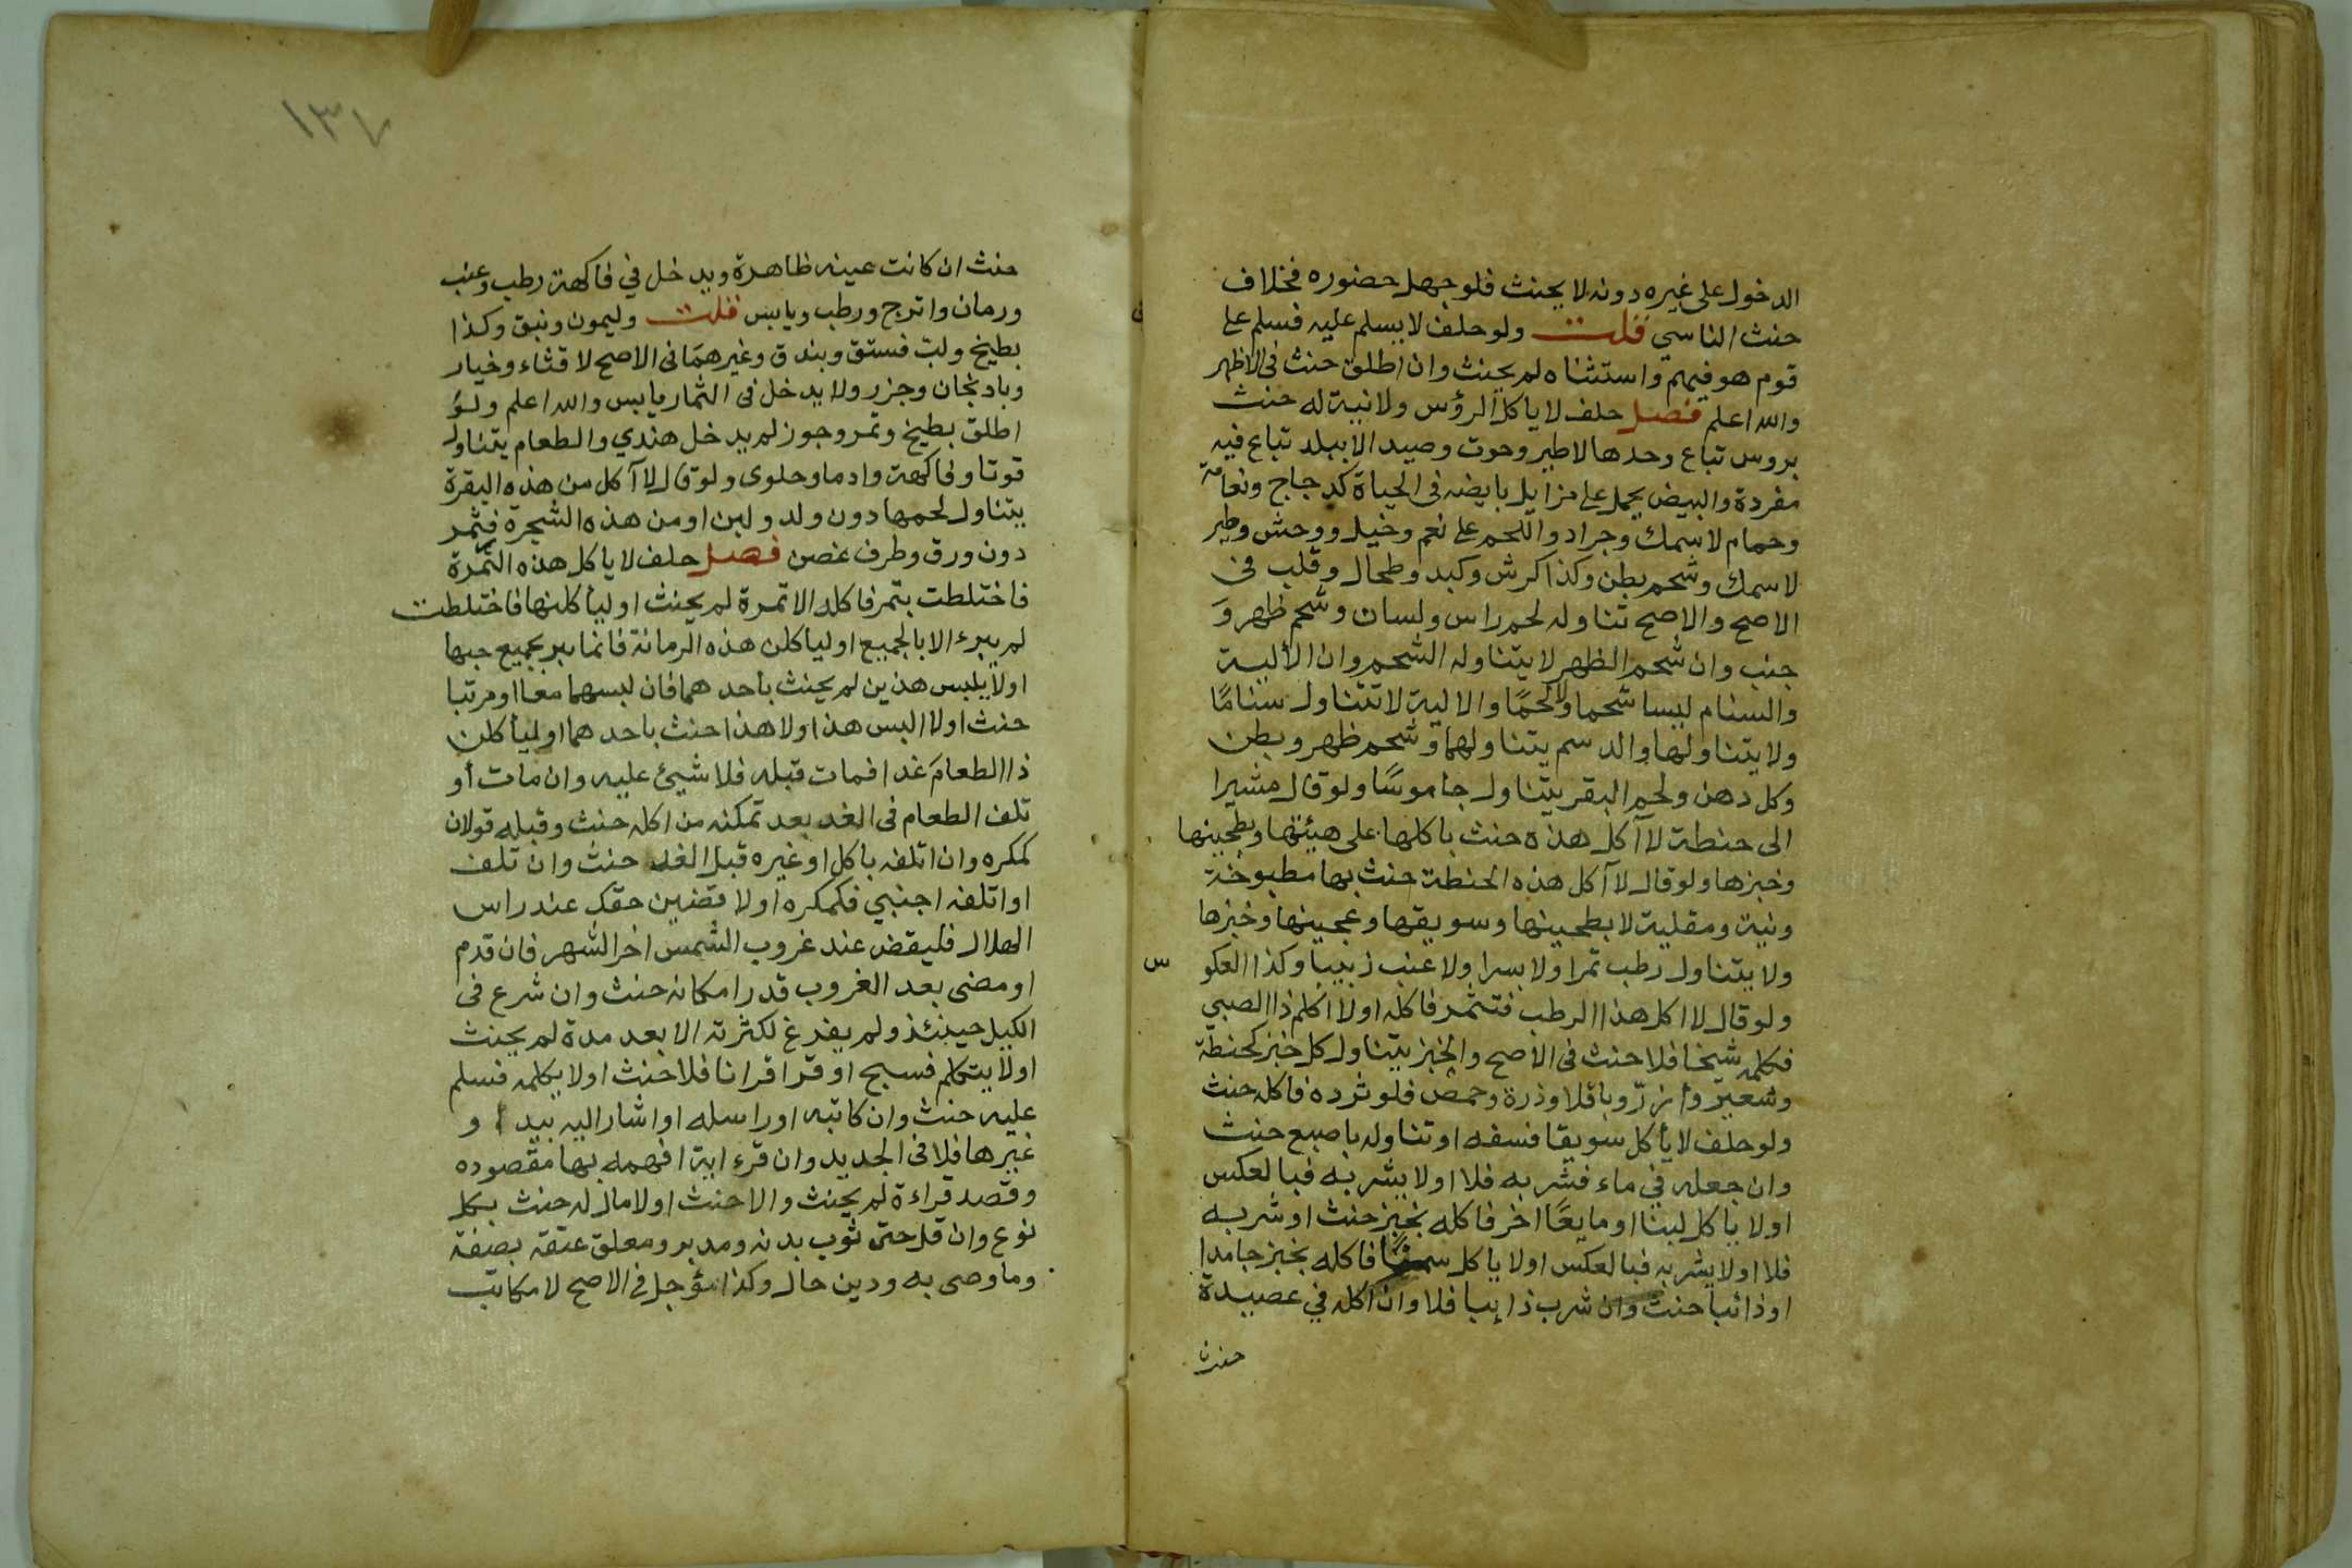 الدخول على غيره دونه لا يحنث فلو جهل حضوره فخلاف
حنث الناسي قلت ولو حلف لا يسلم عليه فسلم على
قوم هو فيهم واستثناه لم يحنث وان اطلق حنث في الاظهر
والله اعلم فصل حلف لا ياكل الرؤس ولا نية له حنث
بروس تباع وحدها لا طير وحوت وصيد الا ببلد تباع فيه
مفردة والبيض يحمل على مزايل بايضه في الحياة كدجاج ونعامة
وحمام لا سمك وجراد واللحم على نعم وخيل ووحش وطير
لا سمك وشحم بطن وكذا كرش وكبد وطحال وقلب في
الاصح والاصح تناوله لحم راس ولسان وشحم ظهر وَ
جنب وان شحم الظهر لا يتناوله الشحم وان الألية
والسنام ليسا شحما ولا لحمًا والالية لا تتناول سنامًا
ولا يتناولها والدسم يتناولهما وشحم ظهر وبطن
وكل دهن ولحم البقر يتناول جاموسًا ولو قال مشيرا
الى حنطة لا آكل هذه حنث باكلها على هيئتها وبطحينها
وخبزها ولو قال لا آكل هذه الحنطة حنث بها مطبوخة
ونية ومقلية لا بطحينها وسويقها وعجينها وخبزها
ولا يتناول رطب تمرا ولا بسرا ولا عنب زبيبا وكذا العكو س
ولو قال لا اكل هذا الرطب فتتمر فاكله او لا اكلم ذا الصبي
فكلمه شيخا فلا حنث في الاصح والخبز يتناول كل خبز كحنطة
وشعير وأرزّ وباقلا وذرة وحمص فلو ثرده فاكله حنث
ولو حلف لا يأكل سويقا فسفه او تناوله باصبع حنث
وان جعله في ماء فشربه فلا او لا يشربه فبالعكس
او لا ياكل لبنا او مايعًا اخر فاكله بخبز حنث او شربه
فلا او لا يشربه فبالعكس او لا ياكل سمنًا فاكله بخبز جامدا
او ذائبا حنث وان شرب ذايبا فلا وان اكله في عصيدة
حنث
١٣٧
حنث ان كانت عينه ظاهرة ويدخل في فاكهة رطب وعنب
ورمان واترج ورطب ويابس قلت وليمون ونبق وكذا
بطيخ ولب فستق وبندق وغيرهمَا في الاصح لا قثاء وخيار
وبادنجان وجزر ولا يدخل في الثمار يابس والله اعلم ولو
اطلق بطيخ وتمر وجوز لم يدخل هندي والطعام يتناول
قوتا وفاكهة وادما وحلوى ولو قال لا آكل من هذه البقرة
يتناول لحمها دون ولد ولبن او من هذه الشجرة فثمر
دون ورق وطرف غصن فصل حلف لا ياكل هذه التمرة
فاختلطت بتمر فاكله الا تمرة لم يحنث او ليأكلنها فاختلطت
لم يبرء الا بالجميع او لياكلن هذه الرمانة فانما يبر بجميع حبها
او لا يلبس هذين لم يحنث بأحدهما فان لبسهما معا او مرتبا
حنث او لا البس هذا ولا هذا حنث باحدهما او ليأكلن
ذا الطعامَ غدا فمات قبله فلا شيئ عليه وان مات أو
تلف الطعام في الغد بعد تمكنه من اكله حنث وقبله قولان
كمكره وان اتلفه باكل او غيره قبل الغد حنث وان تلف
او اتلفه اجنبي فكمكره او لاقضين حقك عند راس
الهلال فليقض عند غروب الشمس اخر الشهر فان قدم
او مضى بعد الغروب قدر امكانه حنث وان شرع في
الكيل حينئذ ولم يفرغ لكثرته الا بعد مدة لم يحنث
او لا يتكلم فسبح او قرا قرانا فلا حنث او لا يكلمه فسلم
عليه حنث وان كاتبه او راسله او اشار اليه بيد ا و
غيرها فلا في الجديد وان قرء اية افهمه بها مقصوده
وقصد قراءة لم يحنث والا حنث او لا مال له حنث بكل
نوع وان قل حتى ثوب بدنه ومدبر ومعلق عتقه بصفة
وما وصى به ودين حال وكذا مؤجل في الاصح لا مكاتب